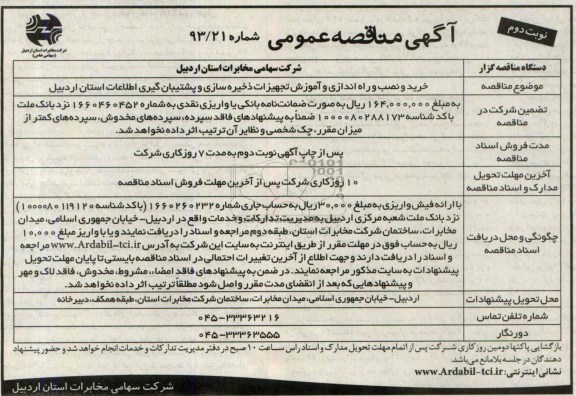 نوبت دوم
آگهی مناقصه عمومی شماره ۹۳/۲۱
شرکت مخابرات استان اردبیل
(سهامی خاص)
دستگاه مناقصه گزار
شرکت سهامی مخابرات استان اردبیل
موضوع مناقصه
خرید و نصب و راه اندازی و آموزش تجهیزات ذخیره سازی و پشتیبان گیری اطلاعات استان اردبیل
تضمین شرکت در
مناقصه
به مبلغ ۱۶۴,۰۰۰,۰۰۰ ریال به صورت ضمانت نامه بانکی یا واریزی نقدی به شماره ۱۶۶۰۴۶۰۴۵۲ نزد بانک ملت
با کد شناسه ۱۰۰۰۰۸۰۲۸۸۱۷۳ ضمناً به پیشنهادهای فاقد سپرده، سپرده‌های مخدوش، سپرده‌های کمتر از
میزان مقرر، چک شخصی و نظایر آن ترتیب اثر داده نخواهد شد.
مدت فروش اسناد
مناقصه
پس از چاپ آگهی نوبت دوم به مدت ۷ روز کاری شرکت
آخرین مهلت تحویل
مدارک و اسناد مناقصه
۱۰ روز کاری شرکت پس از آخرین مهلت فروش اسناد مناقصه
چگونگی و محل دریافت
اسناد مناقصه
با ارائه فیش واریزی به مبلغ ۳۰,۰۰۰ ریال به حساب جاری شماره ۱۶۶۰۲۶۰۲۳۲ (با کد شناسه ۱۰۰۰۰۸۰۱۱۹۱۲۰)
نزد بانک ملت شعبه مرکزی اردبیل به مدیریت تدارکات و خدمات واقع در اردبیل- خیابان جمهوری اسلامی، میدان
مخابرات، ساختمان شرکت مخابرات استان، طبقه دوم مراجعه و اسناد را دریافت نمایند و یا با واریز مبلغ ۱۰,۰۰۰
ریال به حساب فوق در مهلت مقرر از طریق اینترنت به سایت این شرکت به آدرس www.Ardabil-tci.ir مراجعه
و اسناد را دریافت دارند و جهت اطلاع از آخرین تغییرات احتمالی در اسناد مناقصه بایستی تا پایان مهلت تحویل
پیشنهادات به سایت مذکور مراجعه نمایند. در ضمن به پیشنهادهای فاقد امضاء، مشروط، مخدوش، فاقد لاک و مهر
و پیشنهادهایی که بعد از انقضای مدت مقرر واصل شود مطلقاً ترتیب اثر داده نخواهد شد.
محل تحویل پیشنهادات
اردبیل- خیابان جمهوری اسلامی، میدان مخابرات، ساختمان شرکت مخابرات استان، طبقه همکف، دبیرخانه
شماره تلفن تماس
۰۴۵-۳۳۳۶۳۲۱۶
دورنگار
۰۴۵-۳۳۳۶۳۵۵۵
بازگشایی پاکتها دومین روز کاری شرکت پس از اتمام مهلت تحویل مدارک و اسناد راس ساعت ۱۰ صبح در دفتر مدیریت تدارکات و خدمات انجام خواهد شد و حضور پیشنهاد
دهندگان در جلسه بلامانع می‌باشد.
نشانی اینترنتی: www.Ardabil-tci.ir
شرکت سهامی مخابرات استان اردبیل